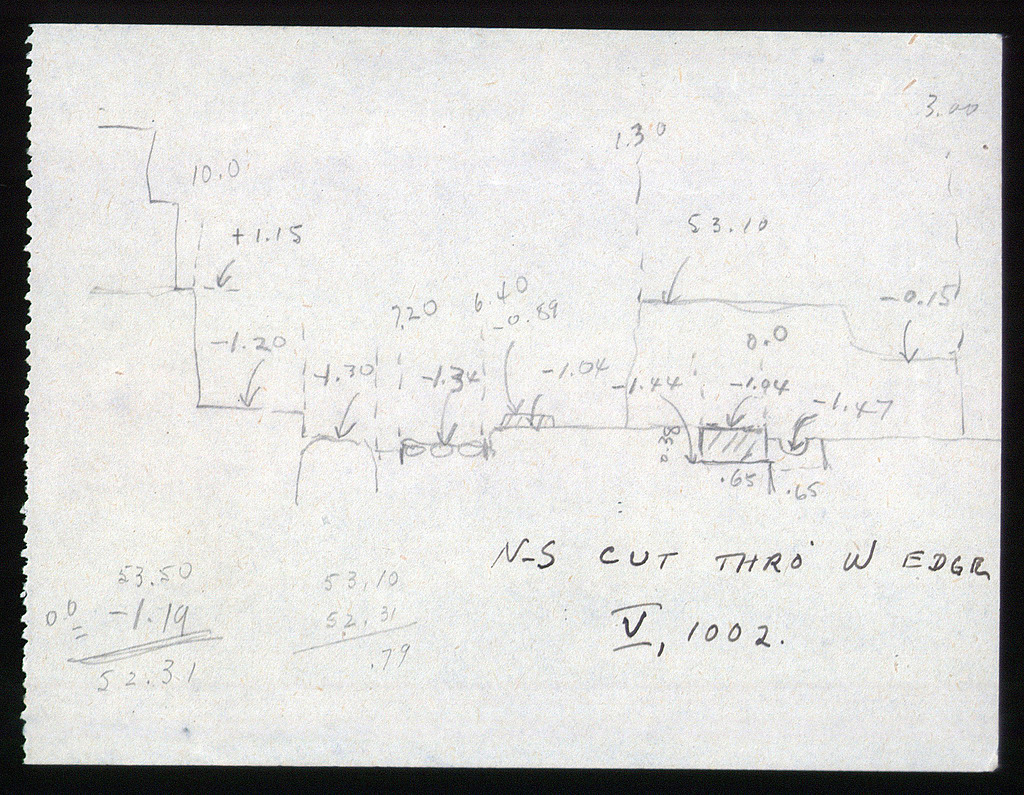 3.00
1.30
10.0
53.10
+1.15
7.20
6.40
-0.89
-0.15
0.0
-1.20
-1.30
-1.34
-1.04
-1.44
-1.04
-1.47
0.38
.65
.65
N-S CUT THRO' W EDGE
V, 1002.
53.50
0.0 = -1.19
52.31
53.10
52.31
.79